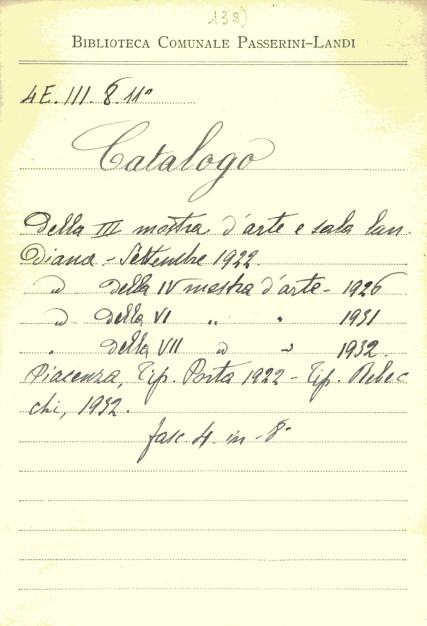 138)
BIBLIOTECA COMUNALE PASSERINI-LANDI
4E. III. 8. 11°
Catalogo
della III mostra d'arte e sala lan-
diana - Settembre 1922.
id della IV mostra d'arte - 1926
id della VI " " 1931
" della VII id id 1932.
Piacenza, Tip. Porta 1922 - Tip. Rebec
chi, 1932.
fasc 4 in -8°